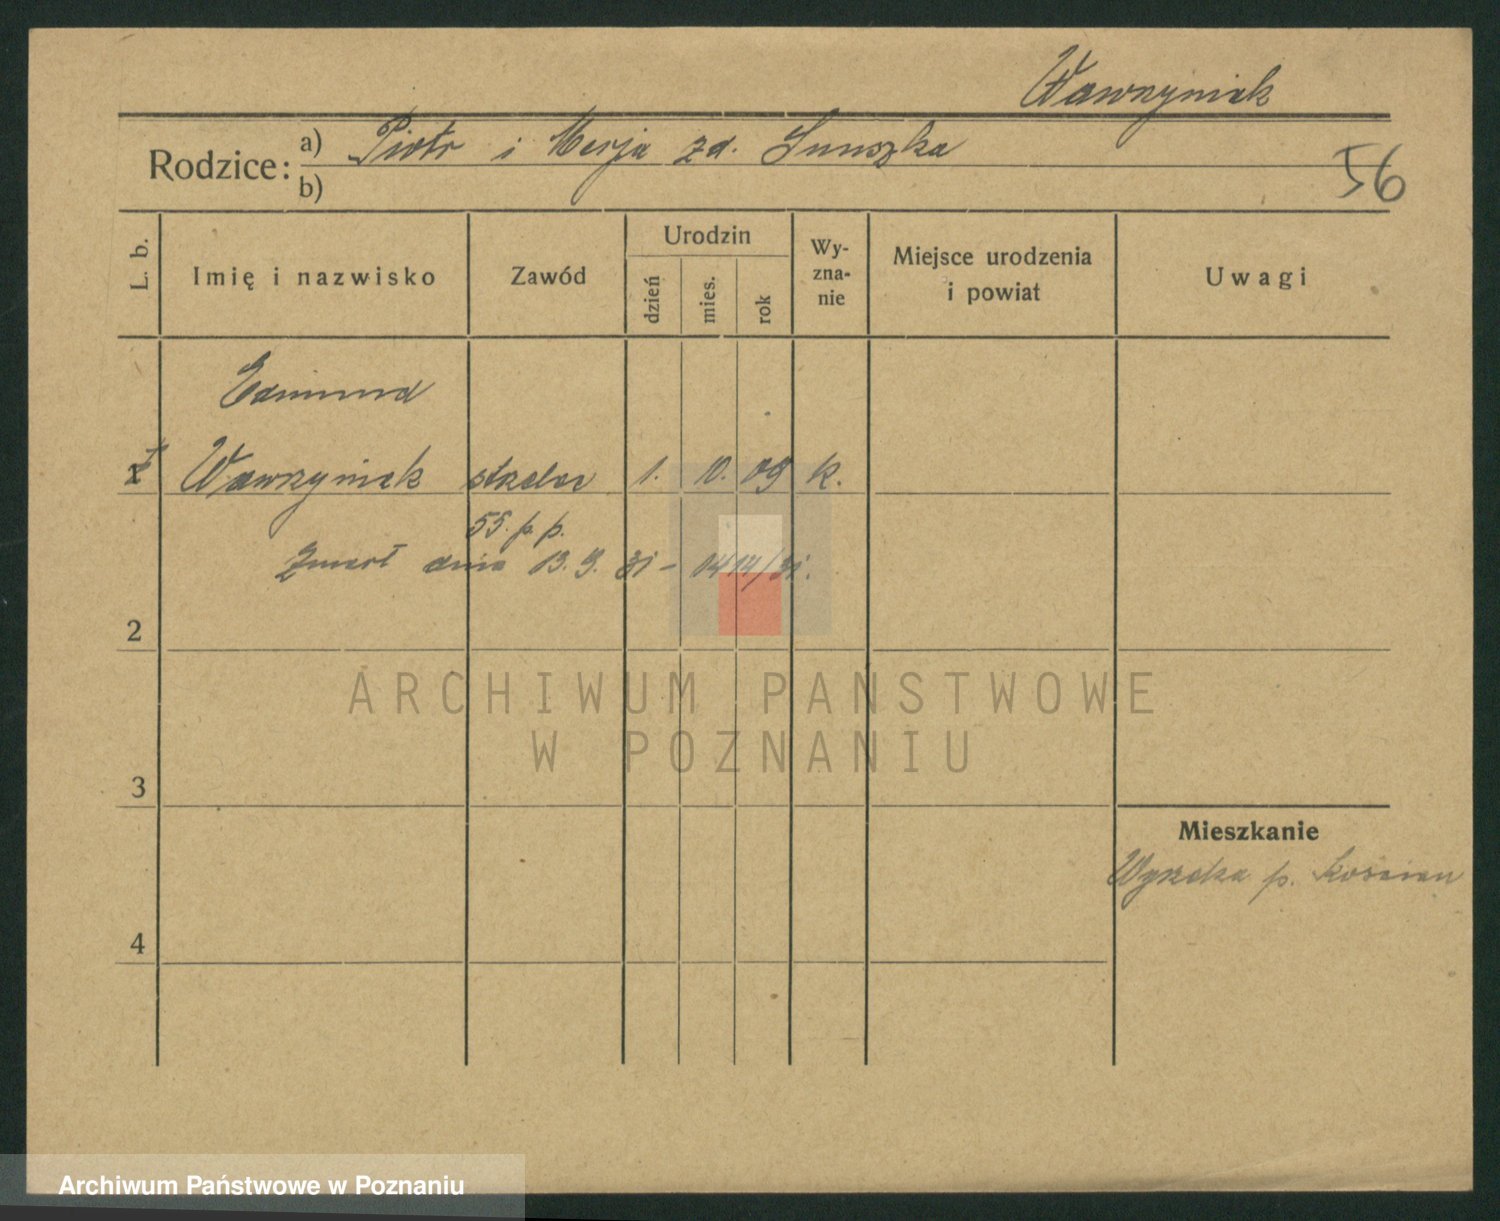 Wawrzyniak
Rodzice: a) Piotr i Marja zd.
b)
56
L. b. Imię i nazwisko Zawód Urodzin dzień mies. rok Wy-zna-nie Miejsce urodzenia i powiat Uwagi
Edmund
1 Wawrzyniak strzelec 1. 10. 09 k.
55. p. p.
Zmarł dnia 13. 9. 31 -
2
ARCHIWUM PAŃSTWOWE
W POZNANIU
3
Mieszkanie
p. Kościan
4
Archiwum Państwowe w Poznaniu